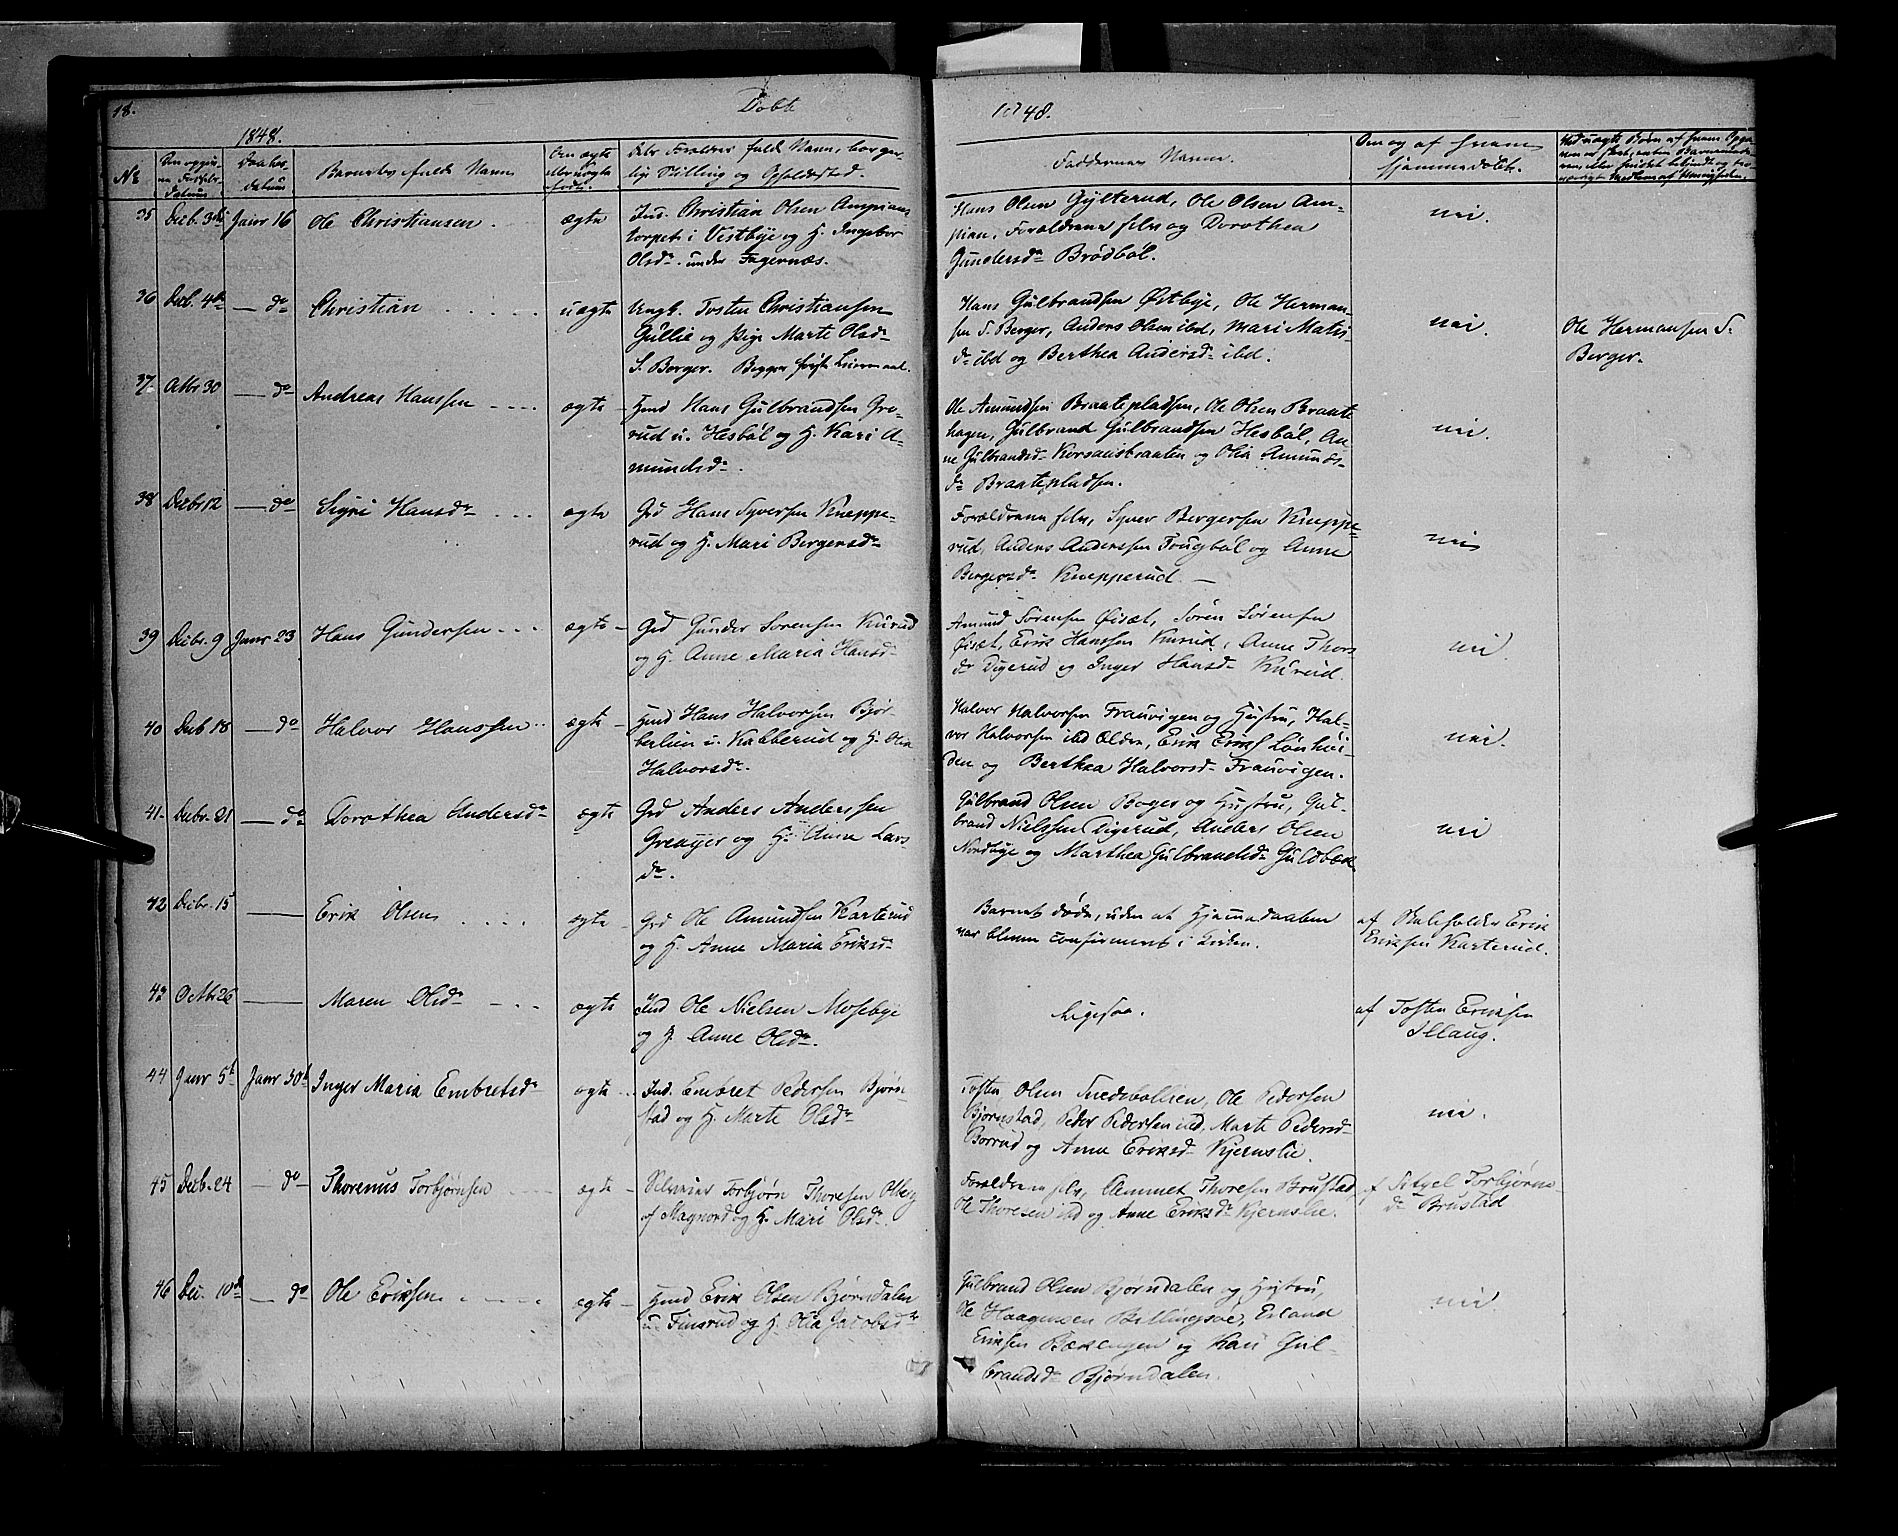 18.
Døbte
1848.
1848.
No
Den opgivne Fødsels-Datum
Daabs-datum
Barnets fulde Navn
Om ægte eller uægte født.
Dets Forældres fulde Navn, borgerlig Stilling og Opholdssted.
Faddernes Navne.
Om og af hvem hjemmedøbt.
35 Decb. 3de Janr 16 Ole Christiansen. ægte
Ind. Christian Olsen Ampians
torpet i Vestbye og H. Ingebor
Olsdr. under Fagernæs.
Hans Olsen Gylterud, Ole Olsen Am-
pian, Forældrene selv og Dorothea
Gundersdr Brødbøl.
nei.
36 Decb. 4de — do Christian uægte
Ungk. Tosten Christiansen
Gullie og Pige Marte Olsdr
S. Berger. Begges første Leiermaal.
Hans Gulbrandsen Østbye, Ole Herman-
sen S. Berger, Anders Olsen ibd, Mari Matis
dr ibd og Berthea Andersdr ibd.
nei.
Ole Hermansen S.
Berger.
37. Octbr 30 — do Andreas Hanssen ægte
Hmd Hans Gulbrandsen Gre-
rud u. Hesbøl og H. Kari A-
mundsdr.
Ole Amundsen Braatepladsen, Ole Olsen Braate
hagen, Gulbrand Gulbrandsen Hesbøl, An
ne Gulbrandsdr Korsmisbraaten og Olia Amunds-
dr Braatepladsen.
nei.
38 Decbr 12 — do Sigri Hansdr ægte
Grd Hans Syversen Kneppe-
rud og H. Mari Bergersdr
Forældrene selv, Syver Bergersen Kneppe-
rud, Anders Anderssen Fougbøl og Anne
Bergersdr Knepperud —
nei
39 Decbr. 9 Janr 23 Hans Gundersen ægte
Grd Gunder Sørensen Kurud
og H. Anne Maria Hansdr
Amund Sørensen Øiset, Søren Sørensen
Øiset, Erik Hanssen Kurud, Anne Thors
dr Digerud og Inger Hansdr Kurud.
nei
40 Decb 18 — do Halvor Hanssen ægte
Hmd Hans Halvorsen Bjør-
berlien u. Kabberud og H. Olia
Halvorsdr.
Halvor Halvorsen Frauvigen og Hustru, Hal-
vor Halvorsen ibd Ældre, Erik Eriks Lønhei
den og Berthea Halvorsdr Frauvigen.
nei.
41. Decbr. 21 — do Dorothea Andersdr ægte
Grd Anders Anderssen
Grenyer og H. Anne Lars
dr.
Gulbrand Olsen Boger og Hustru, Gul-
brand Nielssen Digerud, Anders Olsen
Nordbye og Marthea Gulbrandsdr Guldbæk
nei
42 Decbr. 15 — Erik Olsen ægte
Grd Ole Amundsen Karterud
og H. Anne Maria Eriksdr
Barnet døde, uden at Hjemmedaaben
var bleven confirmeret i Kirken.
af Skoleholder Erik
Eriksen Karterud.
43 Octbr 26 — Maren Olsdr ægte
Ind Ole Nielsen Mosebye
og H. Anne Olsdr.
Ligesaa.
af Tosten Eriksen
Illaug.
44 Janr 5te Janr 30te Inger Maria Embretsdr ægte
Ind. Embret Pedersen Bjørn
stad og H. Marte Olsdr
Tosten Olsen Snedebollien, Ole Pedersen
Bjørnstad, Peder Pedersen ibd, Marte Pedersdr
Borrud og Anne Eriksdr Kjernslie.
nei.
45 Decb. 24 — do Thorenus Torbjørnsen ægte
Torbjørn Thoresen Olberg
af Magnord og H. Mari Olsdr.
Forældrene selv, Amnet Thoresen Brustad
Ole Thoresen ibd og Anne Eriksdr Kjernslie.
af Sigel Torbjørns
dr Brustad
46 Dec. 10de — do Ole Eriksen ægte
Hmd Erik Olsen Bjørndalen
u. Finsrud og H. Olia Jacobsdr
Gulbrand Olsen Bjørndalen og Hustru,
Ole Haagensen Billingsøe, Erland
Eriksen Bækengen og Kari Gul-
brandsdr Bjørndalen.
nei